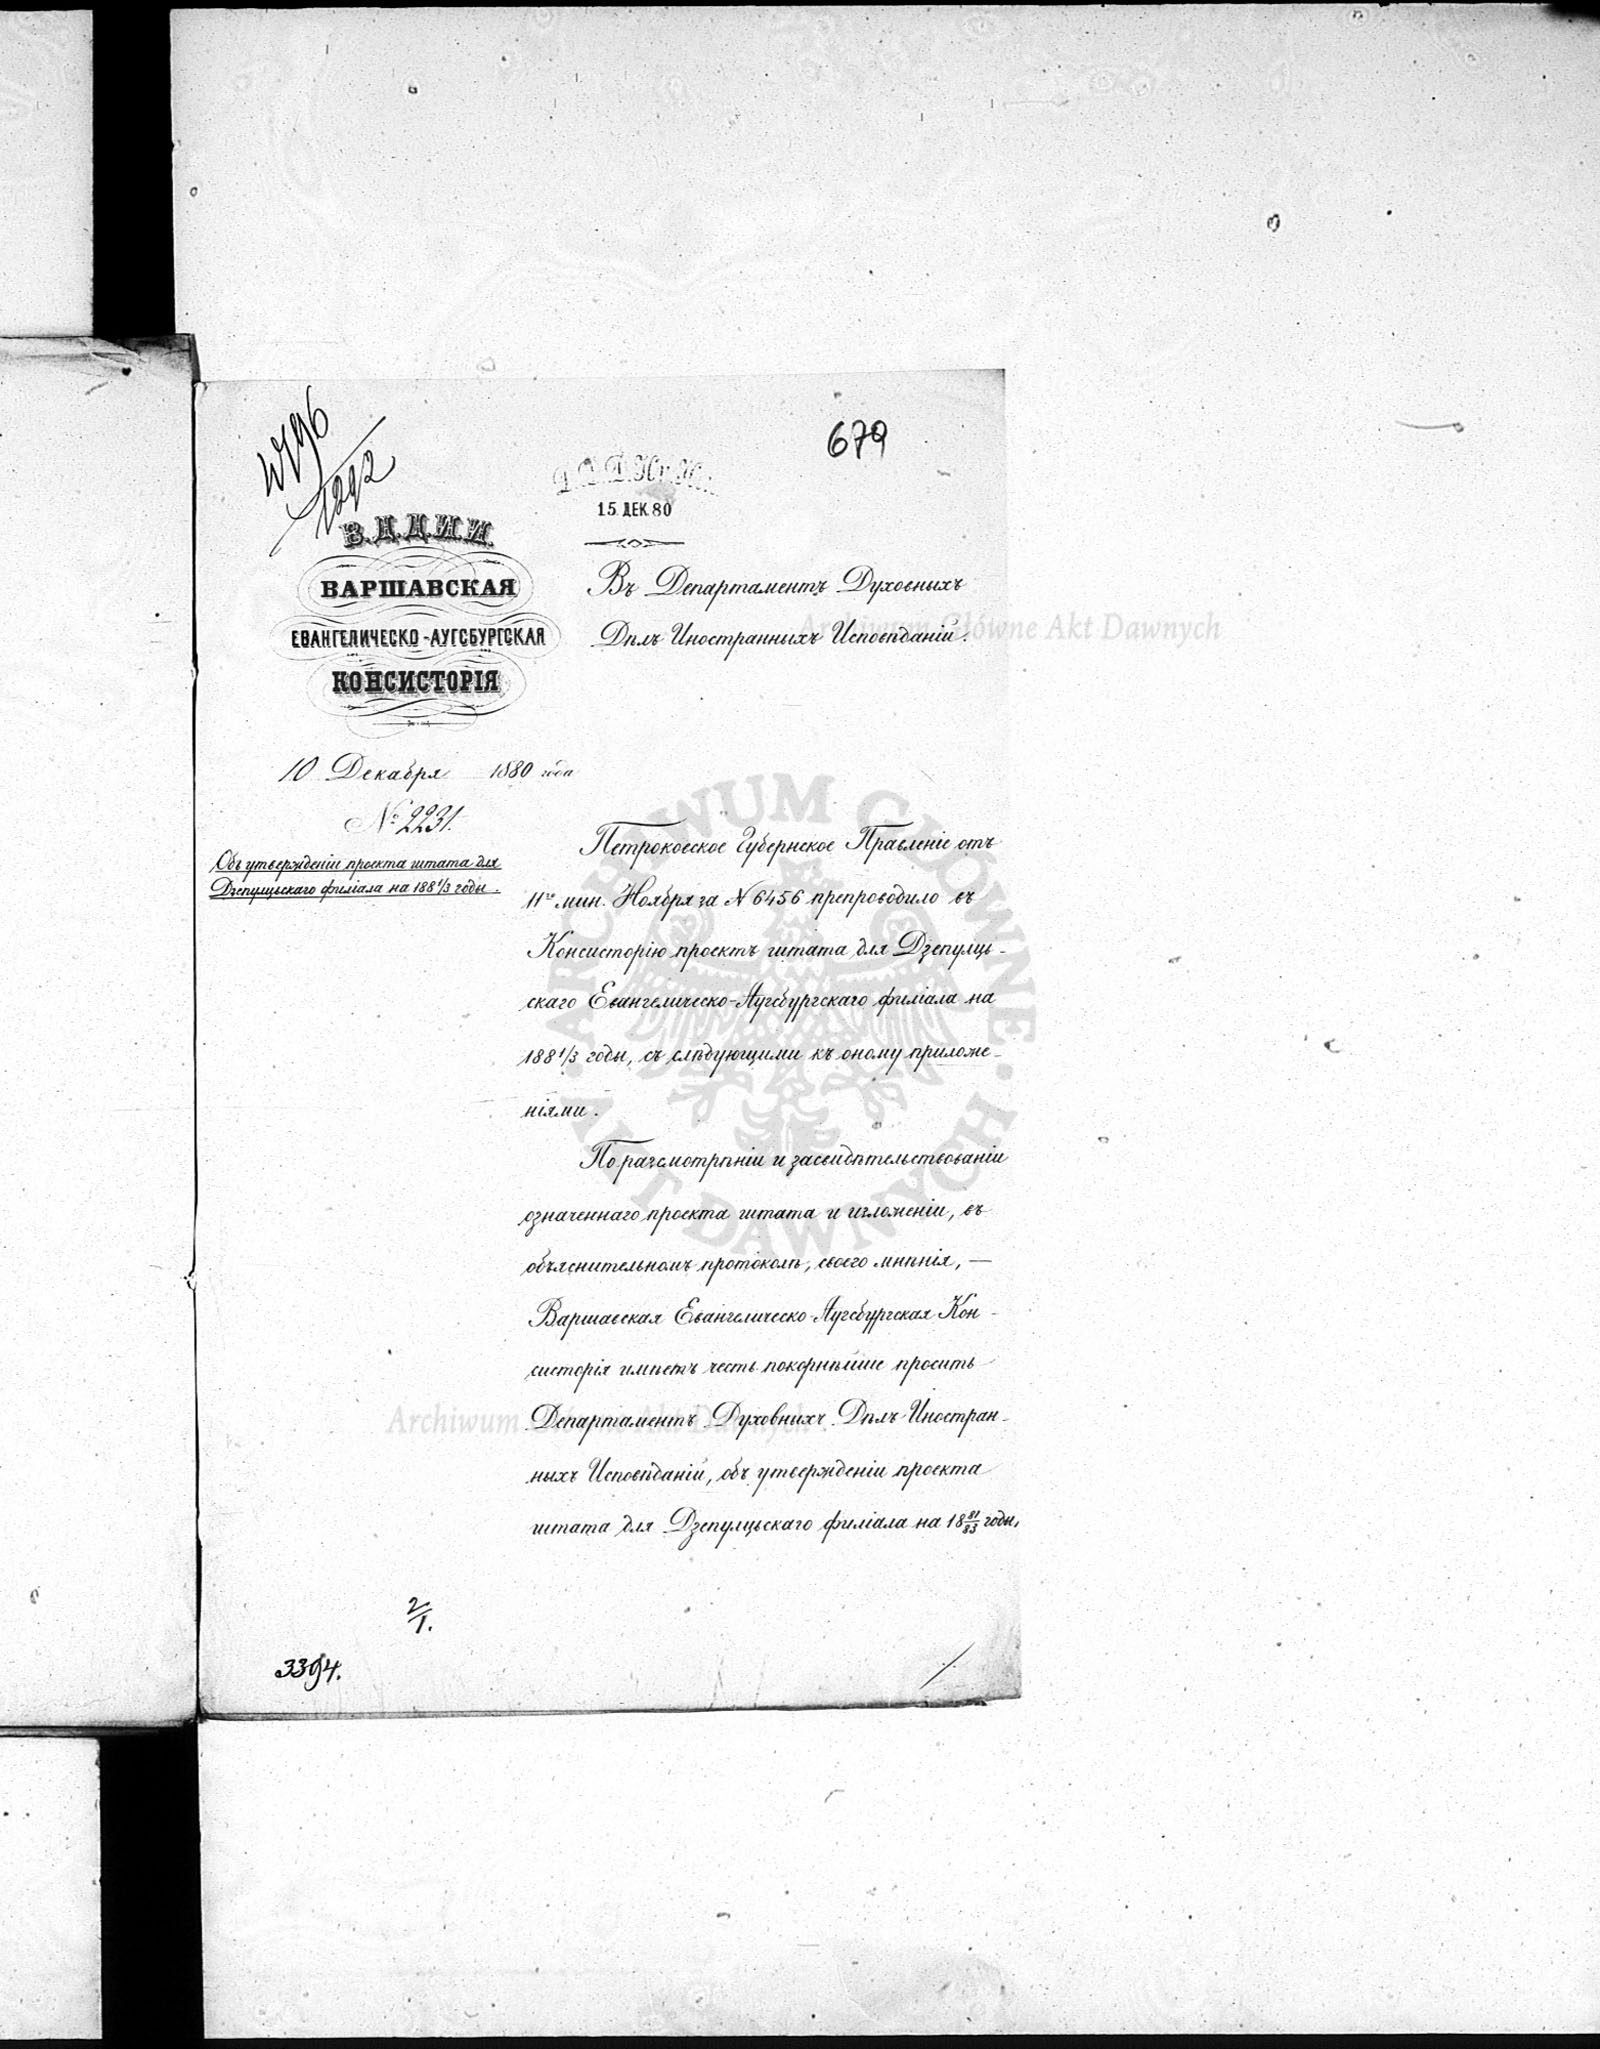 679
15. ДЕК. 80
В.Д.Д.И.И.
ВАРШАВСКАЯ
ЕВАНГЕЛИЧЕСКО-АУГСБУРГСКАЯ
КОНСИСТОРІЯ
10 Декабря 1880 года
№ 2231.
Объ утвержденіи проекта штата для
Дзепулцьскаго филіала на 188 1/3 годы.
Въ Департаментъ Духовныхъ
Дѣлъ Иностранныхъ Исповѣданій.
Петроковское Губернское Правленіе отъ
11го мин. Ноября за N 6456 препроводило въ
Консисторію проектъ штата для Дзепулць-
скаго Евангелическо-Аугсбургскаго филіала на
188 1/3 годы, съ слѣдующими къ оному приложе-
ніями.
По разсмотрѣніи и засвидѣтельствованіи
означеннаго проекта штата и изложеніи, въ
объяснительномъ протоколѣ, своего мнѣнія, —
Варшавская Евангелическо-Аугсбургская Кон-
систорія имѣетъ честь покорнѣйше просить
Департаментъ Духовныхъ Дѣлъ Иностран-
ныхъ Исповѣданій, объ утвержденіи проекта
штата для Дзепулцьскаго филіала на 18 81/83 годы,
2/1.
3394.
Archiwum Główne Akt Dawnych
ARCHIWUM GŁÓWNE AKT DAWNYCH
Archiwum Główne Akt Dawnych